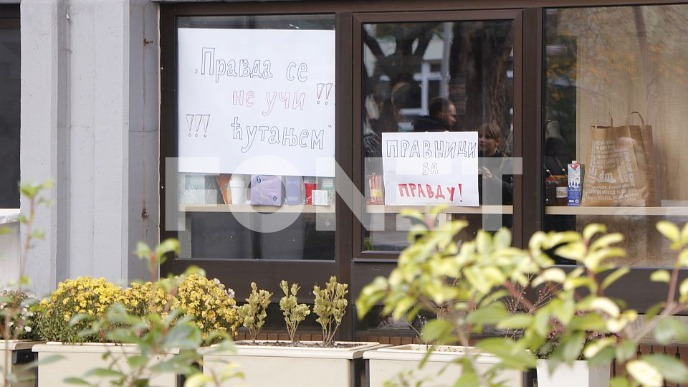 „Правда се
не учи !!
!!! ћутањем“
ПРАВНИЦИ
ЗА
ПРАВДУ!
FONET